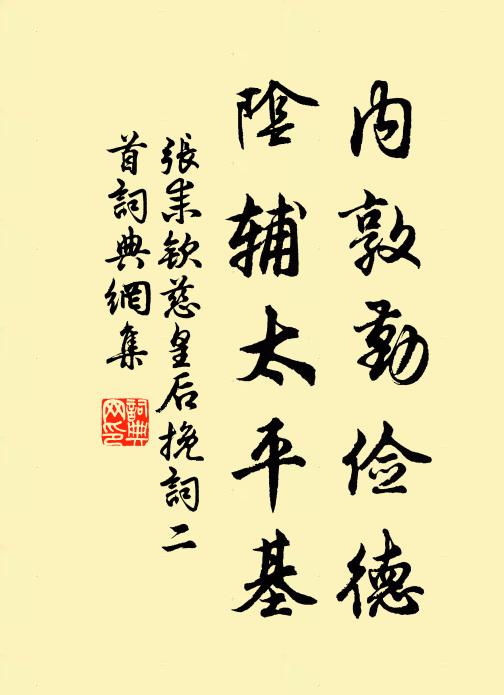 内敦勤俭德
陰辅太平基
張耒钦慈皇后挽詞二
首詞典網集
詞典
网印